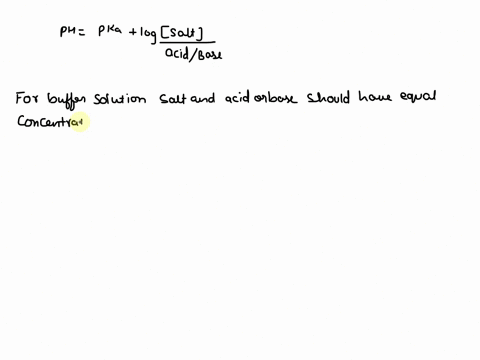 PH = PKa + log [Salt]
acid/Base
For buffer solution salt and acid or base should have equal
Concentrat